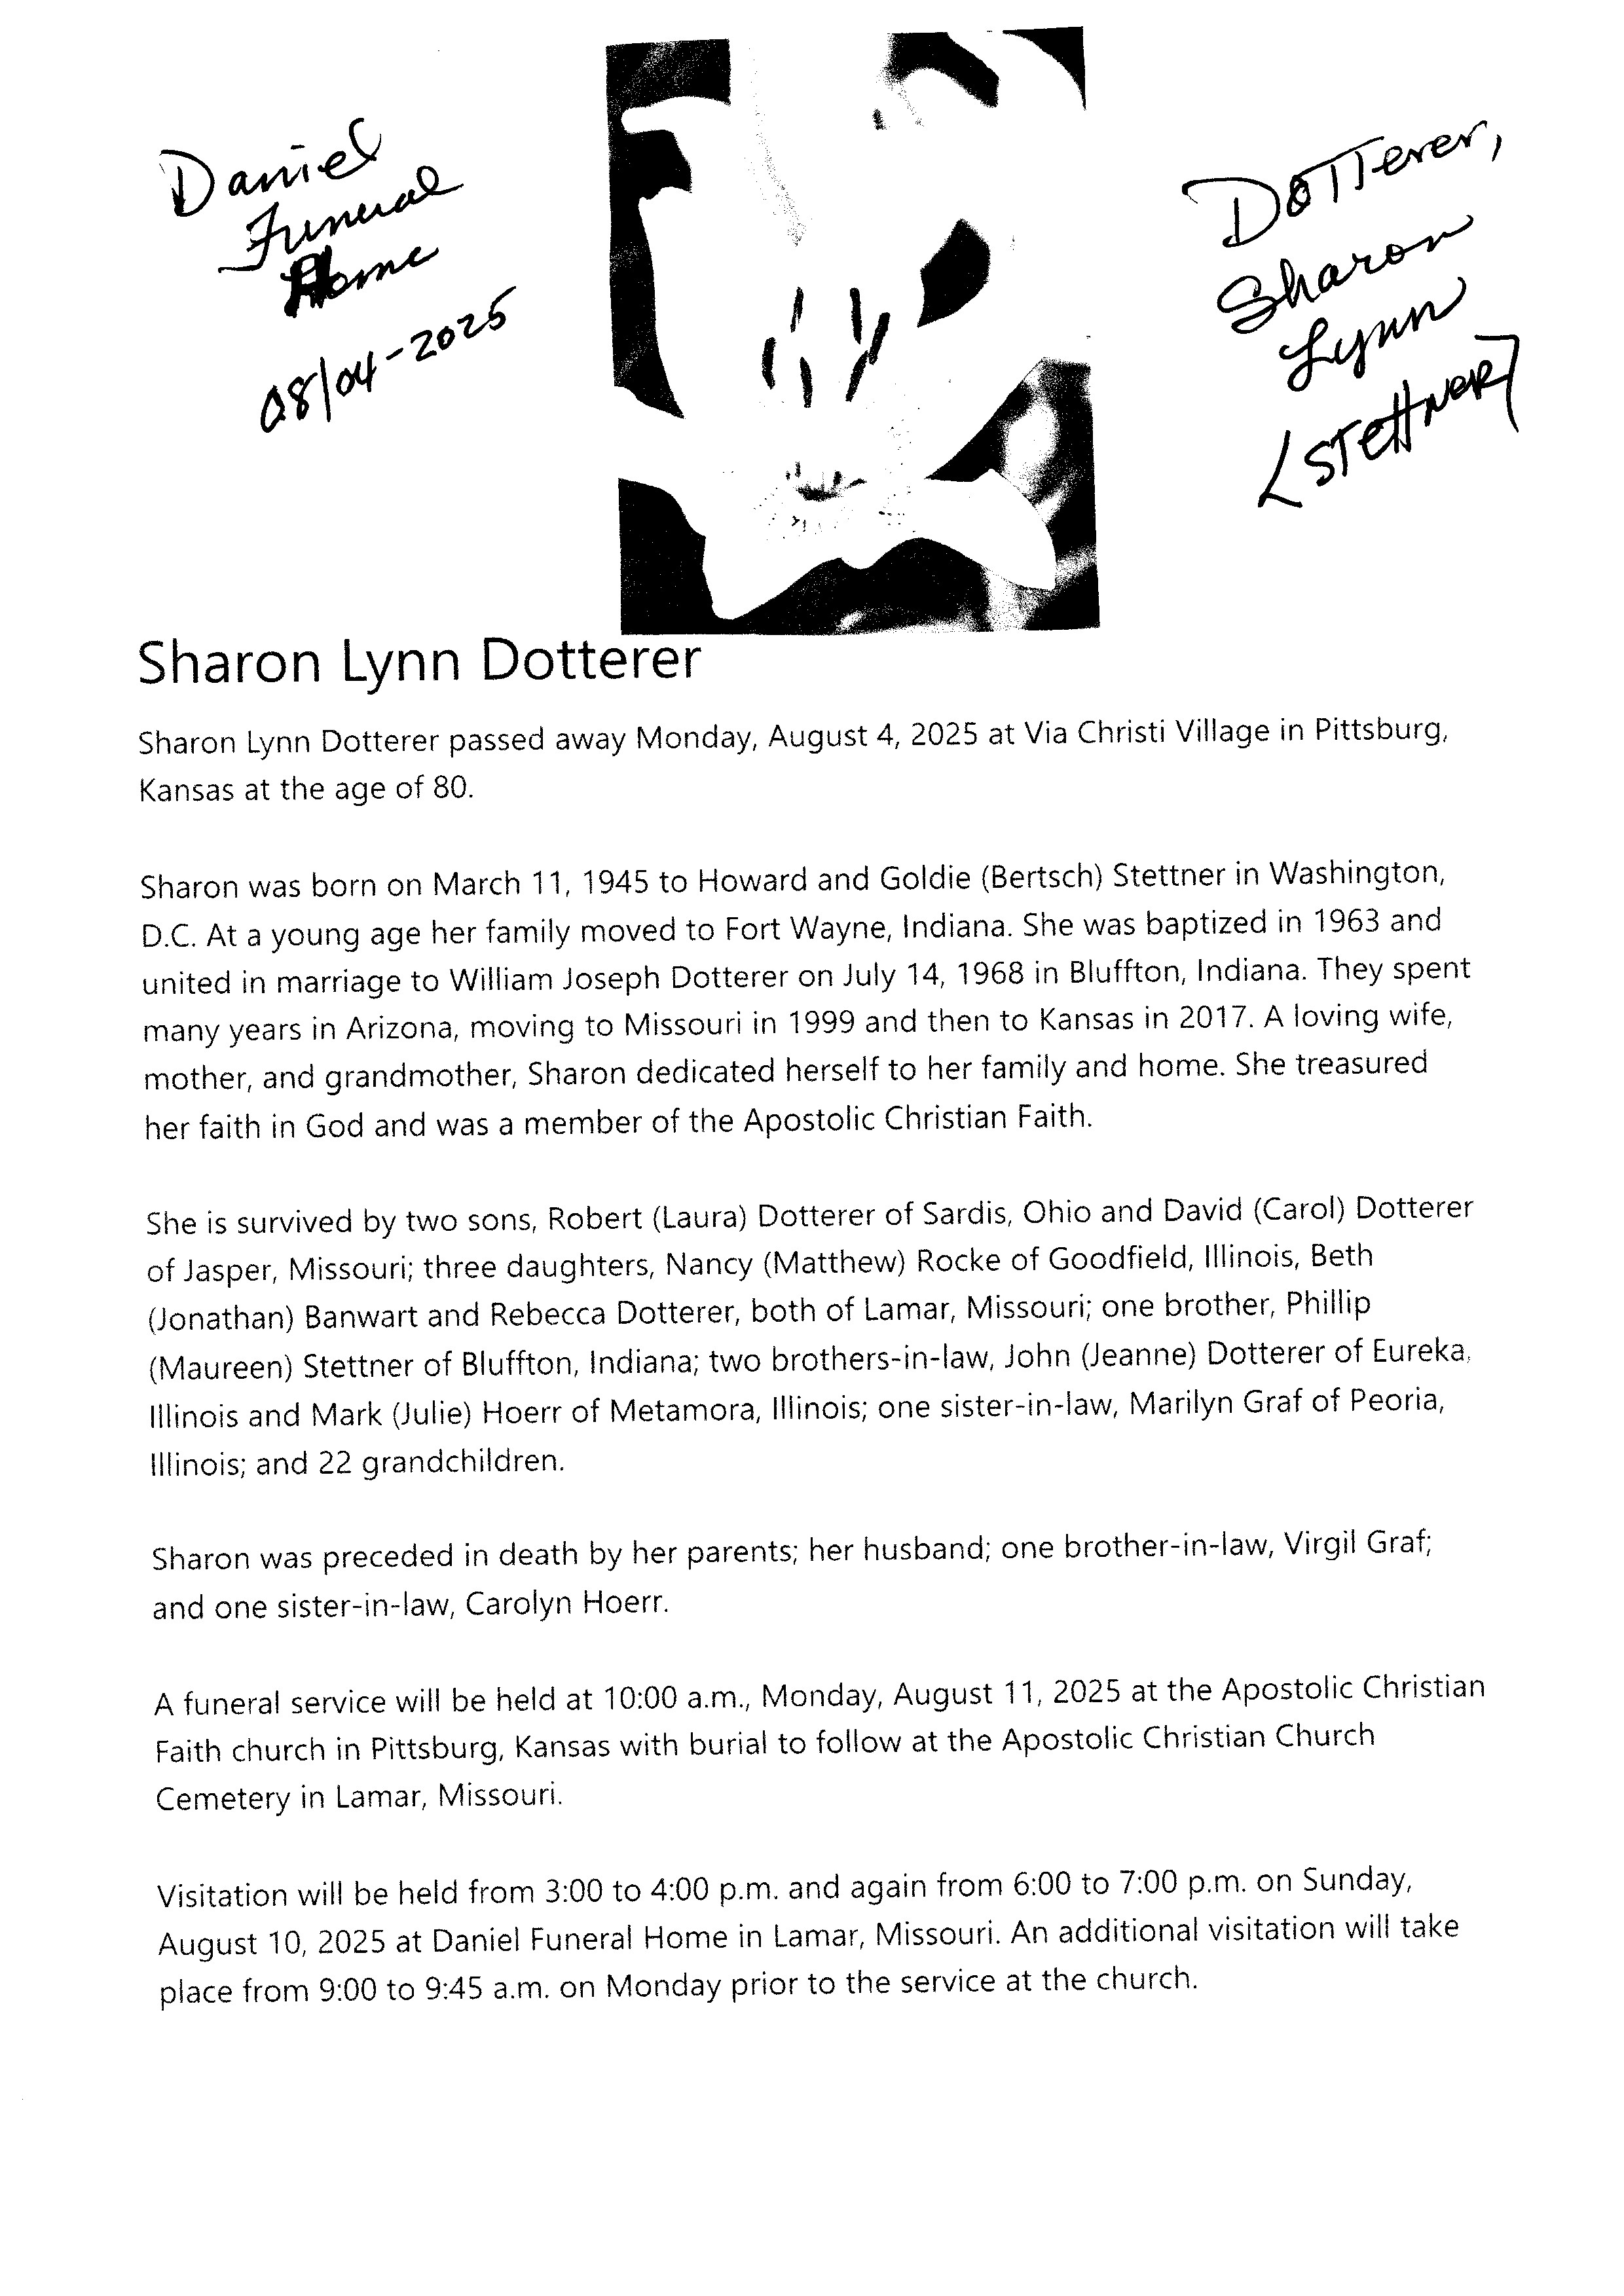 Daniel
Funeral
Home
08/04-2025
Dotterer,
Sharon
Lynn
(Stettner)
Sharon Lynn Dotterer
Sharon Lynn Dotterer passed away Monday, August 4, 2025 at Via Christi Village in Pittsburg,
Kansas at the age of 80.
Sharon was born on March 11, 1945 to Howard and Goldie (Bertsch) Stettner in Washington,
D.C. At a young age her family moved to Fort Wayne, Indiana. She was baptized in 1963 and
united in marriage to William Joseph Dotterer on July 14, 1968 in Bluffton, Indiana. They spent
many years in Arizona, moving to Missouri in 1999 and then to Kansas in 2017. A loving wife,
mother, and grandmother, Sharon dedicated herself to her family and home. She treasured
her faith in God and was a member of the Apostolic Christian Faith.
She is survived by two sons, Robert (Laura) Dotterer of Sardis, Ohio and David (Carol) Dotterer
of Jasper, Missouri; three daughters, Nancy (Matthew) Rocke of Goodfield, Illinois, Beth
(Jonathan) Banwart and Rebecca Dotterer, both of Lamar, Missouri; one brother, Phillip
(Maureen) Stettner of Bluffton, Indiana; two brothers-in-law, John (Jeanne) Dotterer of Eureka,
Illinois and Mark (Julie) Hoerr of Metamora, Illinois; one sister-in-law, Marilyn Graf of Peoria,
Illinois; and 22 grandchildren.
Sharon was preceded in death by her parents; her husband; one brother-in-law, Virgil Graf;
and one sister-in-law, Carolyn Hoerr.
A funeral service will be held at 10:00 a.m., Monday, August 11, 2025 at the Apostolic Christian
Faith church in Pittsburg, Kansas with burial to follow at the Apostolic Christian Church
Cemetery in Lamar, Missouri.
Visitation will be held from 3:00 to 4:00 p.m. and again from 6:00 to 7:00 p.m. on Sunday,
August 10, 2025 at Daniel Funeral Home in Lamar, Missouri. An additional visitation will take
place from 9:00 to 9:45 a.m. on Monday prior to the service at the church.